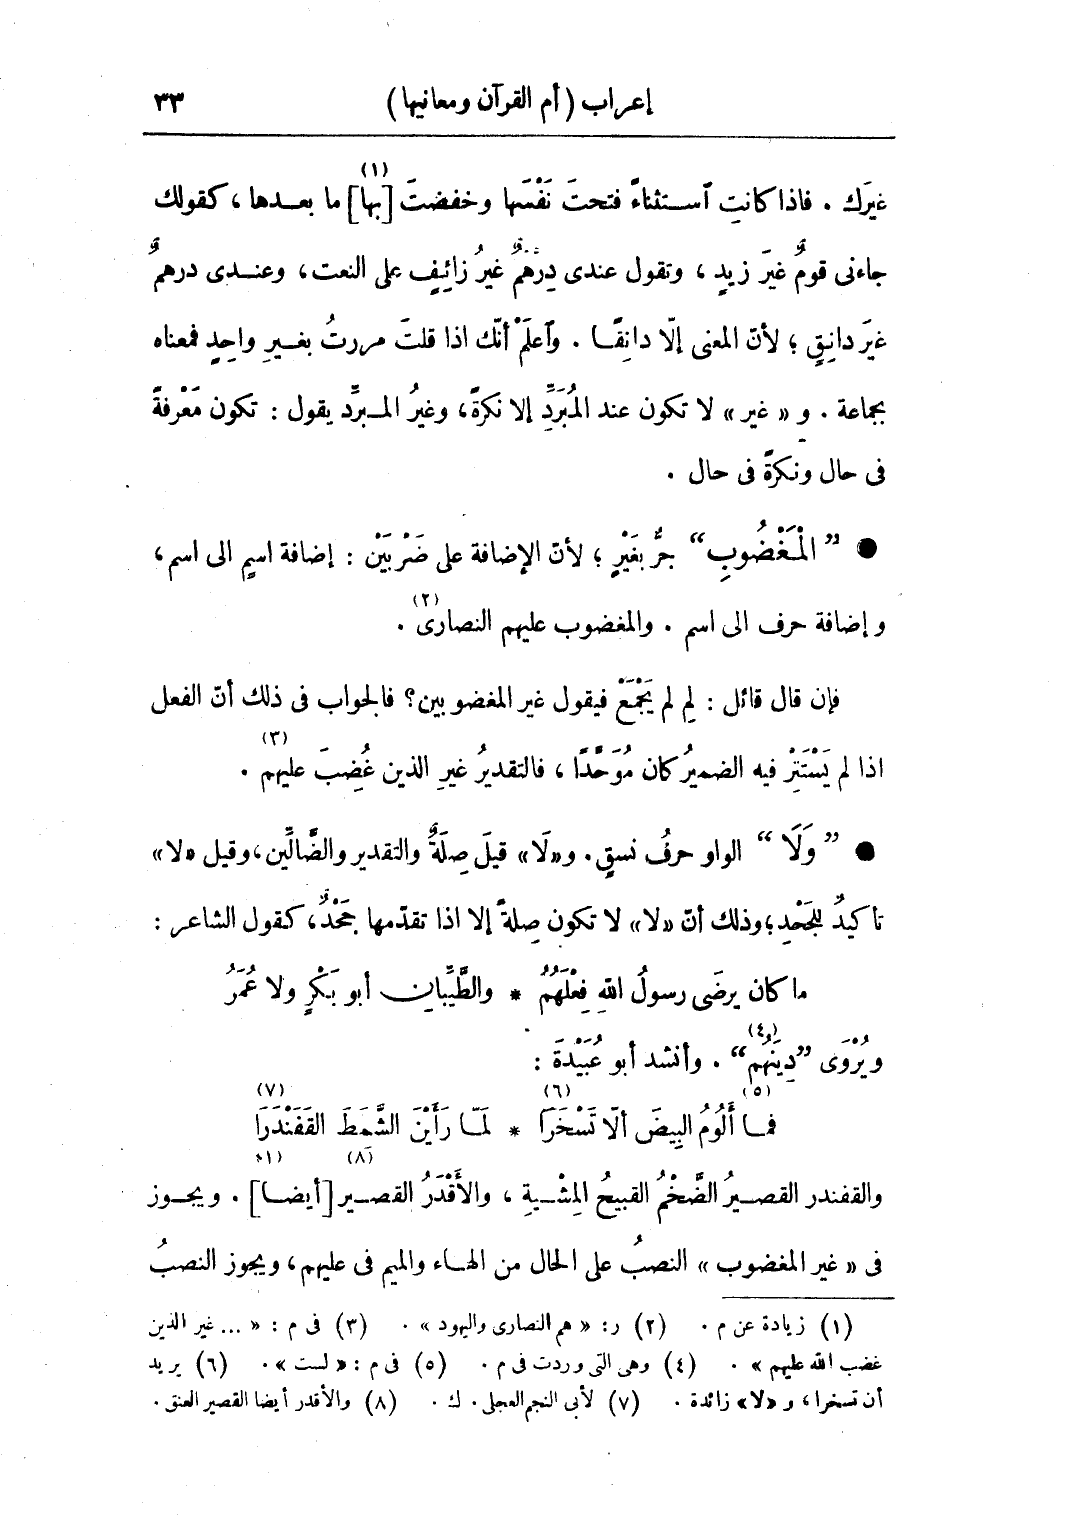 إعراب (أم القرآن ومعانيها) ٣٣
غيرَك . فاذا كانتِ ٱستثناءً فتحتَ نَفْسَها وخفضتَ [بها](١) ما بعدها ، كقولك
جاءنى قومٌ غيرَ زيدٍ ، وتقول عندى دِرْهَمٌ غيرُ زائِفٍ على النعت، وعندى درهمٌ
غيرَ دانِقٍ ؛ لأنّ المعنى إلّا دانِقًا . وٱعلَمْ أنّك اذا قلتَ مررتُ بغيرِ واحِدٍ فمعناه
بجماعة . و « غير » لا تكون عند المُبَرِّدِ إلا نكرةً، وغيرُ المبرِّد يقول : تكون مَعْرفةً
فى حال ونكرةً فى حال .
● ”الْمَغْضُوبِ“ جرٌّ بغَيْرٍ ؛ لأنّ الإضافة على ضَرْبَيْن : إضافة اسمٍ الى اسم،
وإضافة حرف الى اسم . والمغضوب عليهم النصارى(٢) .
فإن قال قائل : لِم لم يَجْمَعْ فيقول غير المغضوبين؟ فالجواب فى ذلك أنّ الفعل
اذا لم يَسْتَتِرْ فيه الضميرُ كان مُوَحَّدًا ، فالتقديرُ غيرِ الذين(٣) غُضِبَ عليهم .
● ”وَلَا“ الواو حرفُ نسقٍ. و«لَا» قيلَ صِلَةٌ والتقدير والضَّالِّين، وقيل «لا»
تأكيدٌ للجَحْدِ؛ وذلك أنّ «لا» لا تكون صِلةً إلا اذا تقدّمها جَحْدٌ، كقول الشاعر :
ما كان يرضَى رسولُ اللهِ فِعْلَهُمُ * والطَّيِّبانِ أبو بَكْرٍ ولا عُمَرُ
ويُرْوَى ”دِينَهُم“(٤) . وأنشد أبو عُبَيْدَةَ :
فما أَلُومُ(٥) البِيضَ ألّا تَسْخَرَا(٦) * لَمّا رَأَيْنَ الشَّمَطَ القَفَنْدَرَا(٧)
والقفندر القصيرُ الضَّخْمُ القبيحُ المِشْيةِ ، والأَقْدَرُ(٨) القصير [أيضا](١) . ويجوز
فى « غير المغضوب » النصبُ على الحال من الهاء والميم فى عليهم، ويجوز النصبُ
(١) زيادة عن م . (٢) ر: « هم النصارى واليهود » . (٣) فى م : « ... غير الذين
غضب الله عليهم » . (٤) وهى التى وردت فى م . (٥) فى م : « لست » . (٦) يريد
أن تسخرا، و «لا» زائدة . (٧) لأبى النجم العجلى . ك . (٨) والأقدر أيضا القصير العنق .